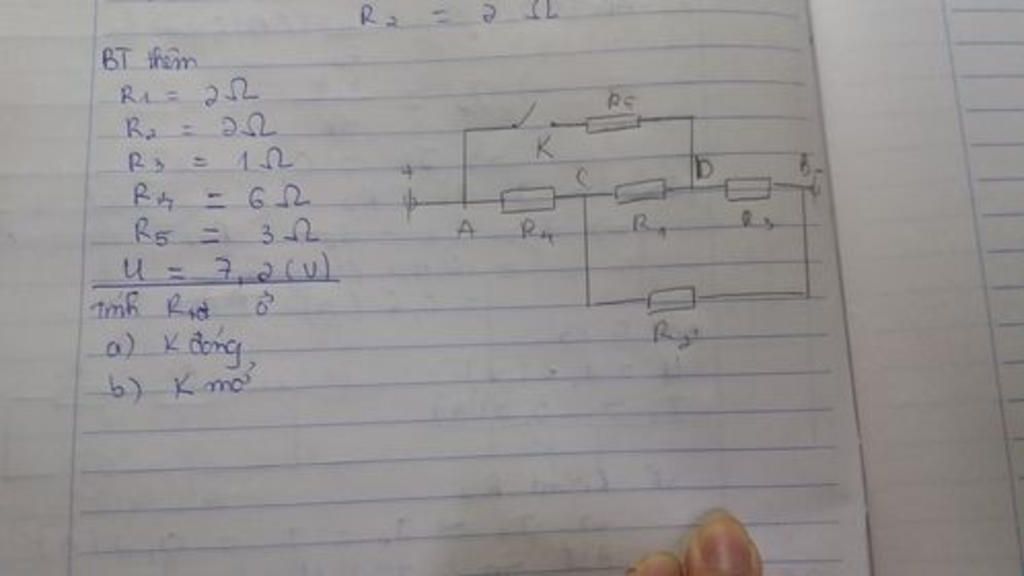 R2 = 2 Ω
BT thêm
R1 = 2Ω
R2 = 2Ω
R3 = 1Ω
R4 = 6Ω
R5 = 3Ω
U = 7,2(V)
Tính Rtđ ở
a) K đóng
b) K mở
R5
K
C
D
B
+
-
A
R4
R1
R3
R2